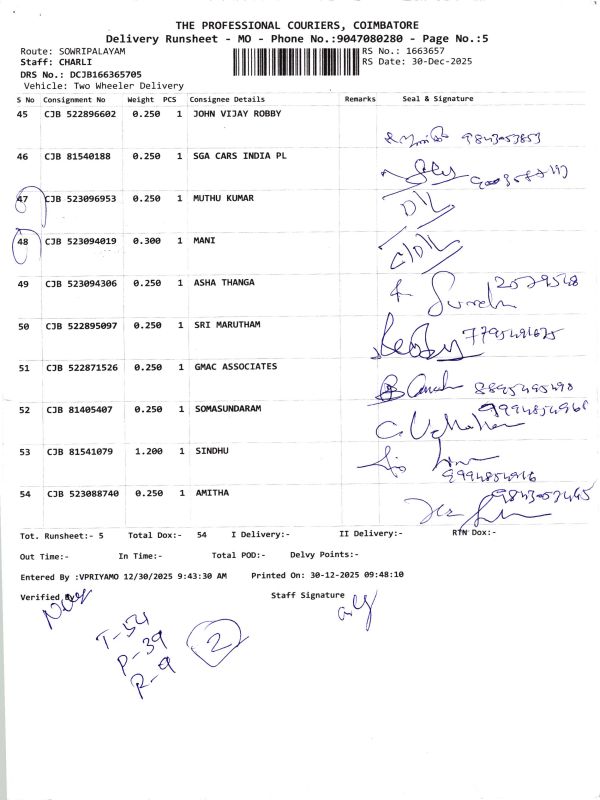 THE PROFESSIONAL COURIERS, COIMBATORE
Delivery Runsheet - MO - Phone No.:9047080280 - Page No.:5
Route: SOWRIPALAYAM RS No.: 1663657
Staff: CHARLI RS Date: 30-Dec-2025
DRS No.: DCJB166365705
Vehicle: Two Wheeler Delivery
S No Consignment No Weight PCS Consignee Details Remarks Seal & Signature
45 CJB 522896602 0.250 1 JOHN VIJAY ROBBY
46 CJB 81540188 0.250 1 SGA CARS INDIA PL
47 CJB 523096953 0.250 1 MUTHU KUMAR D/L
48 CJB 523094019 0.300 1 MANI
49 CJB 523094306 0.250 1 ASHA THANGA
50 CJB 522895097 0.250 1 SRI MARUTHAM
51 CJB 522871526 0.250 1 GMAC ASSOCIATES
52 CJB 81405407 0.250 1 SOMASUNDARAM
53 CJB 81541079 1.200 1 SINDHU
54 CJB 523088740 0.250 1 AMITHA
Tot. Runsheet:- 5 Total Dox:- 54 I Delivery:- II Delivery:- RTN Dox:-
Out Time:- In Time:- Total POD:- Delvy Points:-
Entered By :VPRIYAMO 12/30/2025 9:43:30 AM Printed On: 30-12-2025 09:48:10
Verified By Staff Signature
T-54
P-39 2
R-9